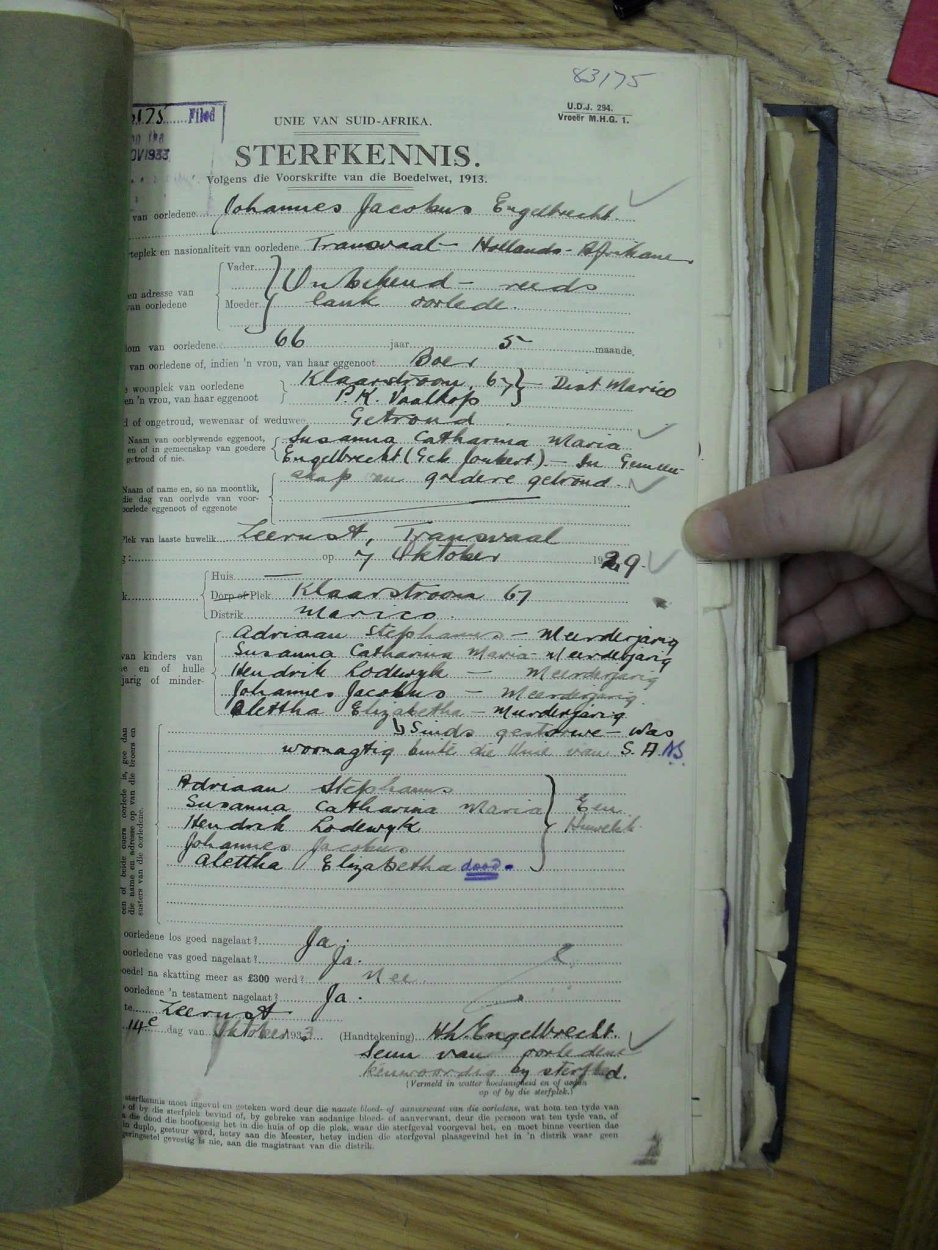 83175
U.D.J. 294.
Vroeër M.H.G. 1.
Filed
UNIE VAN SUID-AFRIKA.
STERFKENNIS.
Volgens die Voorskrifte van die Boedelwet, 1913.
van oorledene Johannes Jacobus Engelbrecht
teplek en nasionaliteit van oorledene Transvaal - Hollands-Afrikaner
en adresse van
van oorledene
Vader
Moeder
Onbekend - reeds
lank oorlede.
van oorledene 66 jaar 5 maande,
van oorledene of, indien 'n vrou, van haar eggenoot Boer
woonplek van oorledene
en 'n vrou, van haar eggenoot
Klaarstroom, 67 - Dist Marico
P.K. Vaalkop
of ongetroud, wewenaar of weduwee Getroud
Naam van oorblywende eggenoot,
en of in gemeenskap van goedere
getroud of nie.
Susanna Catharina Maria
Engelbrecht (Geb Joubert). - In Gemeen-
skap van goedere getroud.
Naam of name en, so na moontlik,
die dag van oorlyde van voor-
oorlede eggenoot of eggenote
Plek van laaste huwelik Zeerust, Transvaal
op 7 Oktober 1929
Huis
Dorp of Plek Klaarstroom 67
Distrik Marico.
van kinders van
en of hulle
jarig of minder-
Adriaan Stephanus - Meerderjarig
Susanna Catharina Maria - Meerderjarig
Hendrik Lodewyk - Meerderjarig
Johannes Jacobus - Meerderjarig.
Alettha Elizabetha - Meerderjarig
Sinds gestorwe - Was
woonagtig buite die Unie van S.A.
een of beide ouers oorlede is, gee dan
die name en adresse op van die broers en
susters van die oorledene.
Adriaan Stephanus
Susanna Catharina Maria
Hendrik Lodewyk
Johannes Jacobus
Alettha Elizabetha dood.
Een
Huwelik
oorledene los goed nagelaat? Ja.
oorledene vas goed nagelaat? Ja.
boedel na skatting meer as £300 werd? Nee
oorledene 'n testament nagelaat? Ja.
te Zeerust
14e dag van Oktober 1933 (Handtekening) Engelbrecht.
Seun van oorledene
teenwoordig by sterfbed.
(Vermeld in watter hoedanigheid en of aanwesig
op of by die sterfplek.)
sterfkennis moet ingevul en geteken word deur die naaste bloed- of aanverwant van die oorledene, wat ten tyde van
of by die sterfplek bevind of, by gebreke van sodanige bloed- of aanverwant, deur die persoon wat ten tyde van, of
die dood die hooftoesig het in die huis of op die plek, waar die sterfgeval voorgeval het, en moet binne veertien dae
in duplo, gestuur word, hetsy aan die Meester, hetsy indien die sterfgeval plaasgevind het in 'n distrik waar geen
gevestig is nie, aan die magistraat van die distrik.